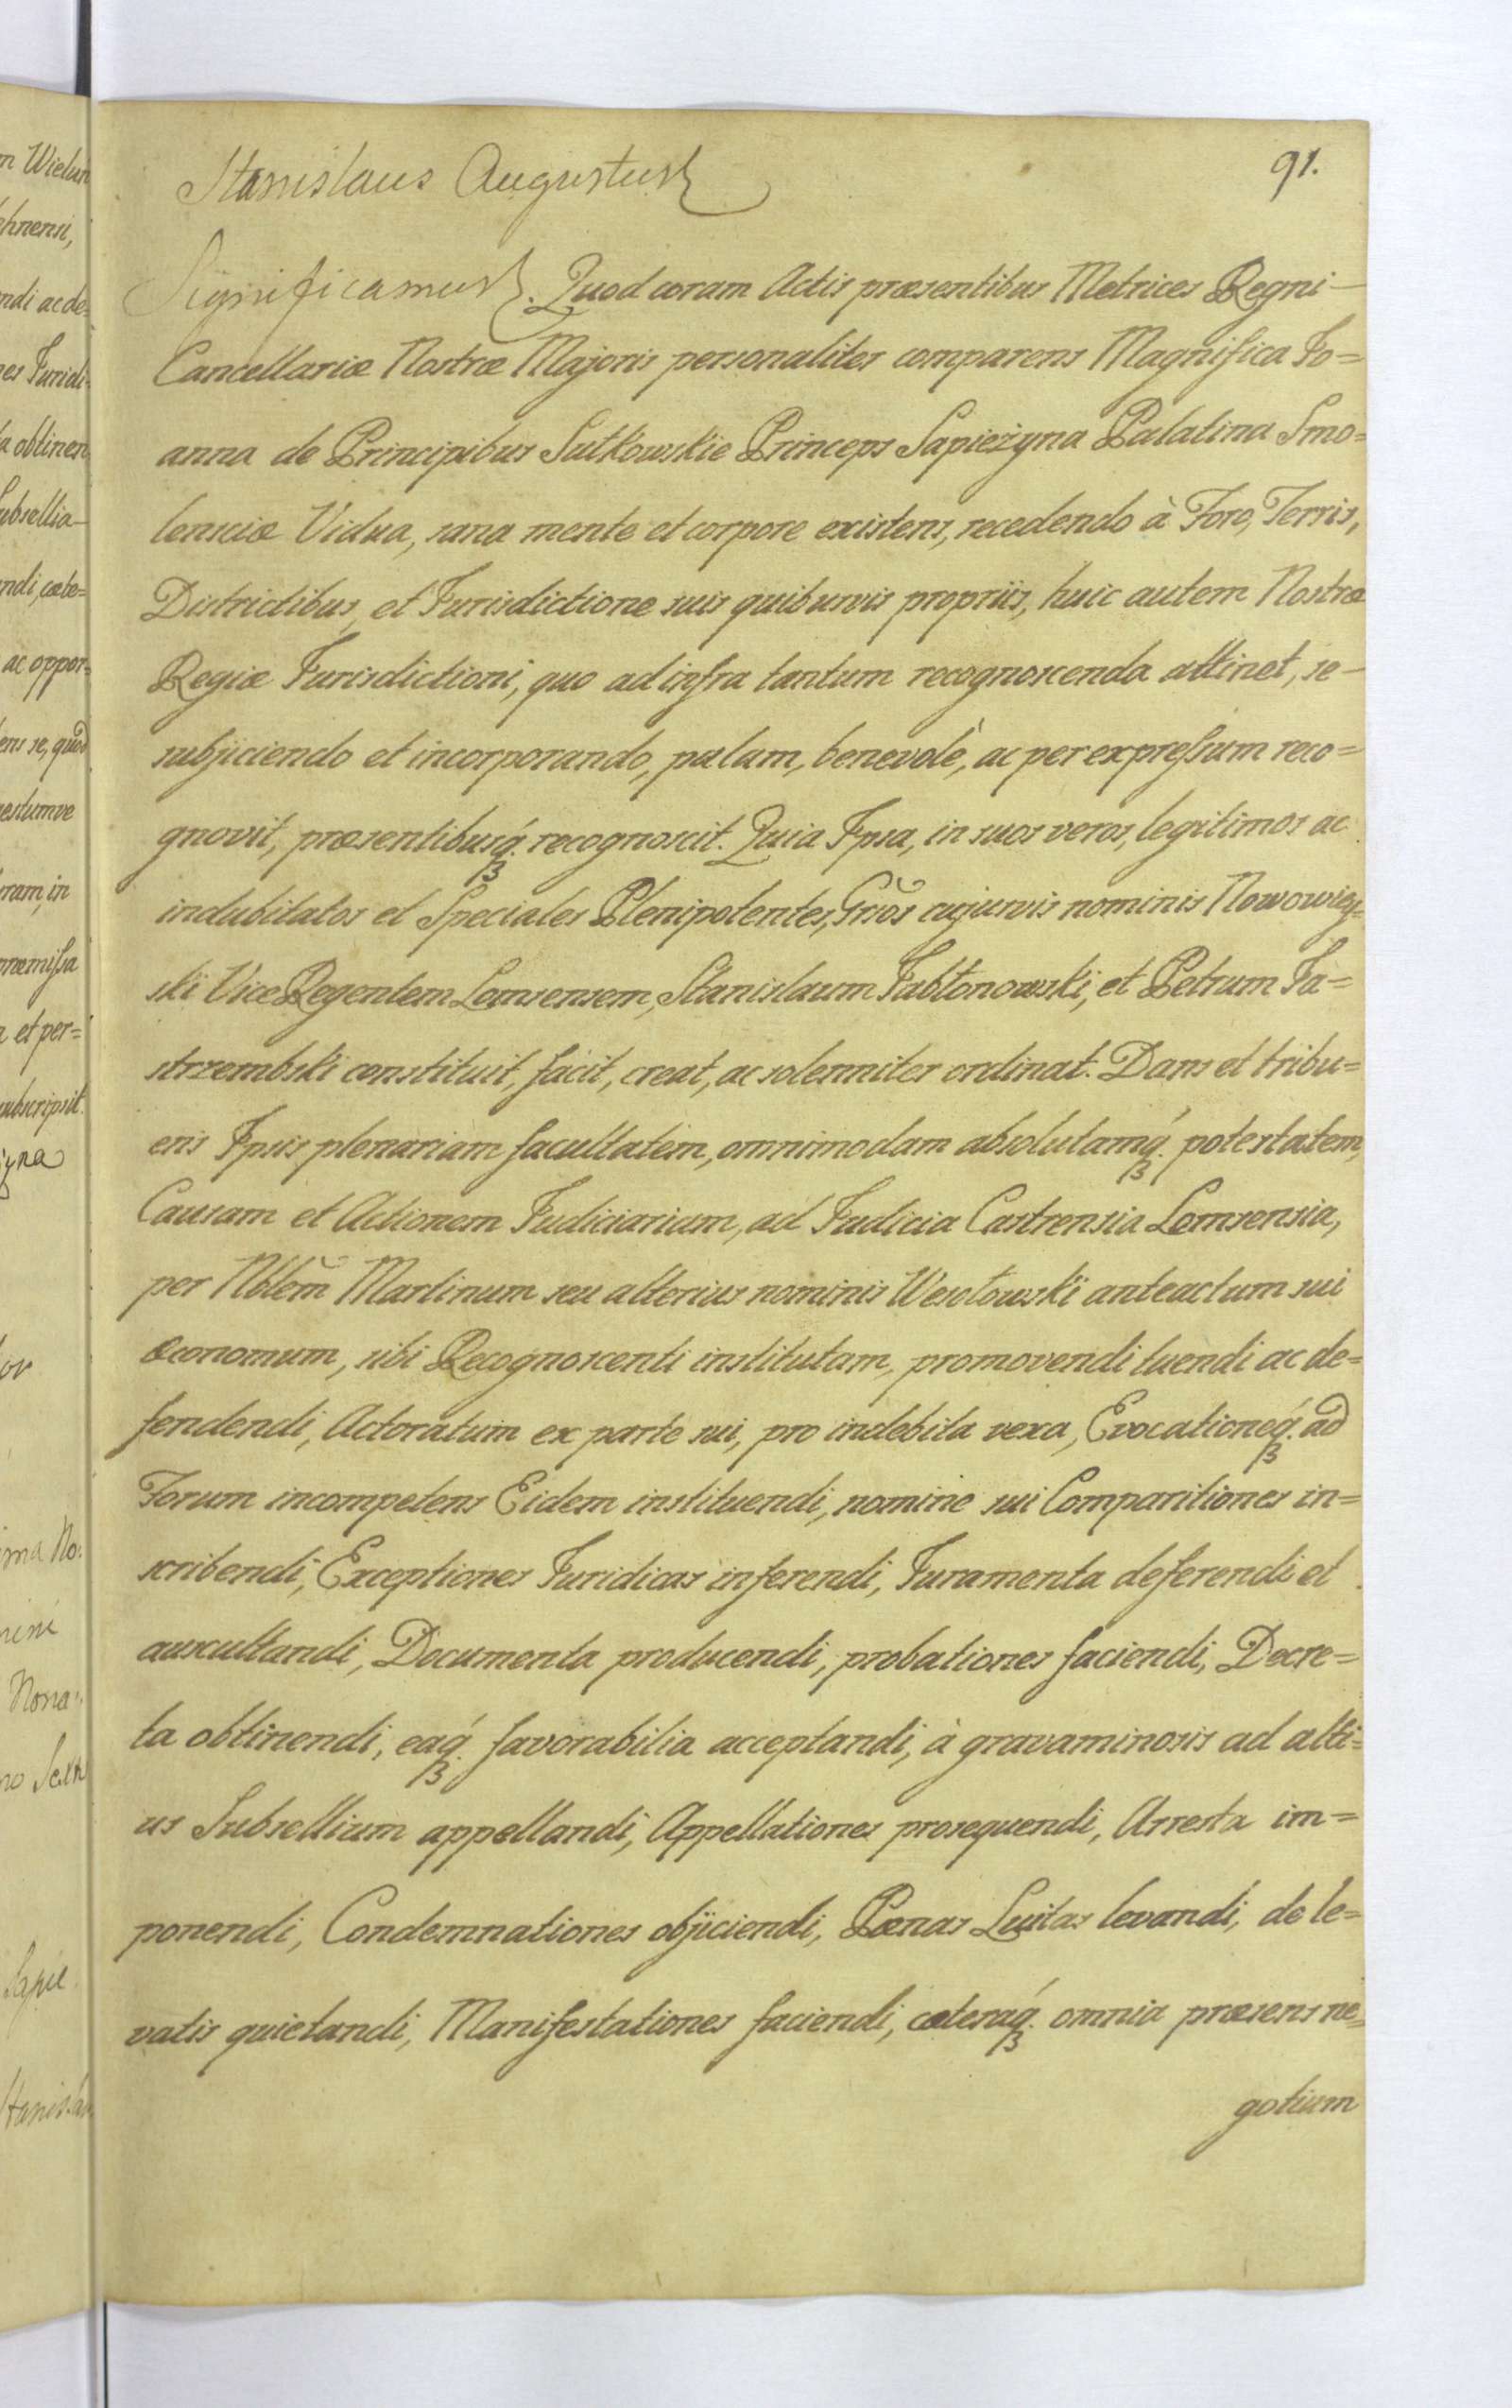 Stanislaus Augustus
91.
Significamus. Quod coram Actis præsentibus Metrices Regni
Cancellariæ Nostræ Majoris personaliter comparens Magnifica Jo=
anna de Principibus Sułkowskie Princeps Sapieżyna Palatina Smo=
lensciæ Vidua, sana mente et corpore existens, recedendo à Foro, Terris,
Districtibus, et Jurisdictione suis quibusvis propriis, huic autem Nostræ
Regiæ Jurisdictioni, quo ad infra tantum recognoscenda attinet, se
subjiciendo et incorporando, palam, benevolè, ac per expressum reco=
gnovit, præsentibusq́ꝫ. recognoscit. Quia Ipsa, in suos veros, legitimos ac
indubitatos et Speciales Plenipotentes, Grõs cujusvis nominis Nowowiey=
ski Vice Regentem Lomsensem, Stanislaum Jabłonowski, et Petrum Ja=
strzembski constituit, facit, creat, ac solenniter ordinat. Dans et tribu=
ens Ipsis plenariam facultatem, omnimodam absolutamq́ꝫ. potestatem,
Causam et Actionem Judiciariam, ad Judicia Castrensia Lomsensia,
per Nblem̃ Martinum seu alterius nominis Wesołowski anteactum sui
Œconomum, sibi Recognoscenti institutam, promovendi tuendi ac de=
fendendi, Actoratum ex parte sui, pro indebita vexa, Evocationeq́ꝫ. ad
Forum incompetens Eidem instituendi, nomine sui Comparitiones in=
scribendi, Exceptiones Juridicas inferendi, Juramenta deferendi et
auscultandi, Documenta producendi, probationes faciendi, Decre=
ta obtinendi, eaq́ꝫ. favorabilia acceptandi, à gravaminosis ad alti=
us Subsellium appellandi, Appellationes prosequendi, Arresta im=
ponendi, Condemnationes objiciendi, Pœnas Luitas levandi, de le=
vatis quietandi, Manifestationes faciendi, cæteraq́ꝫ. omnia præsens ne=
gotium